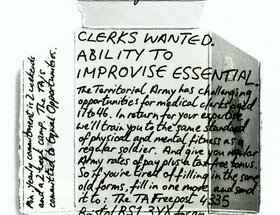 CLERKS WANTED.
ABILITY TO
IMPROVISE ESSENTIAL.
The Territorial Army has challenging
opportunities for medical clerks aged
17 to 46. In return for your expertise
we'll train you to the same standard
of physical and mental fitness as a
regular soldier. And give you regular
Army rates of pay plus a tax free bonus.
So if you're tired of filling in the same
old forms, fill in one more and send
it to: The TA Freepost 4335
Bristol BS1 3YX
Min. yearly commitment is 2 weekends
and a 2 week camp. The TA is
committed to Equal Opportunities.